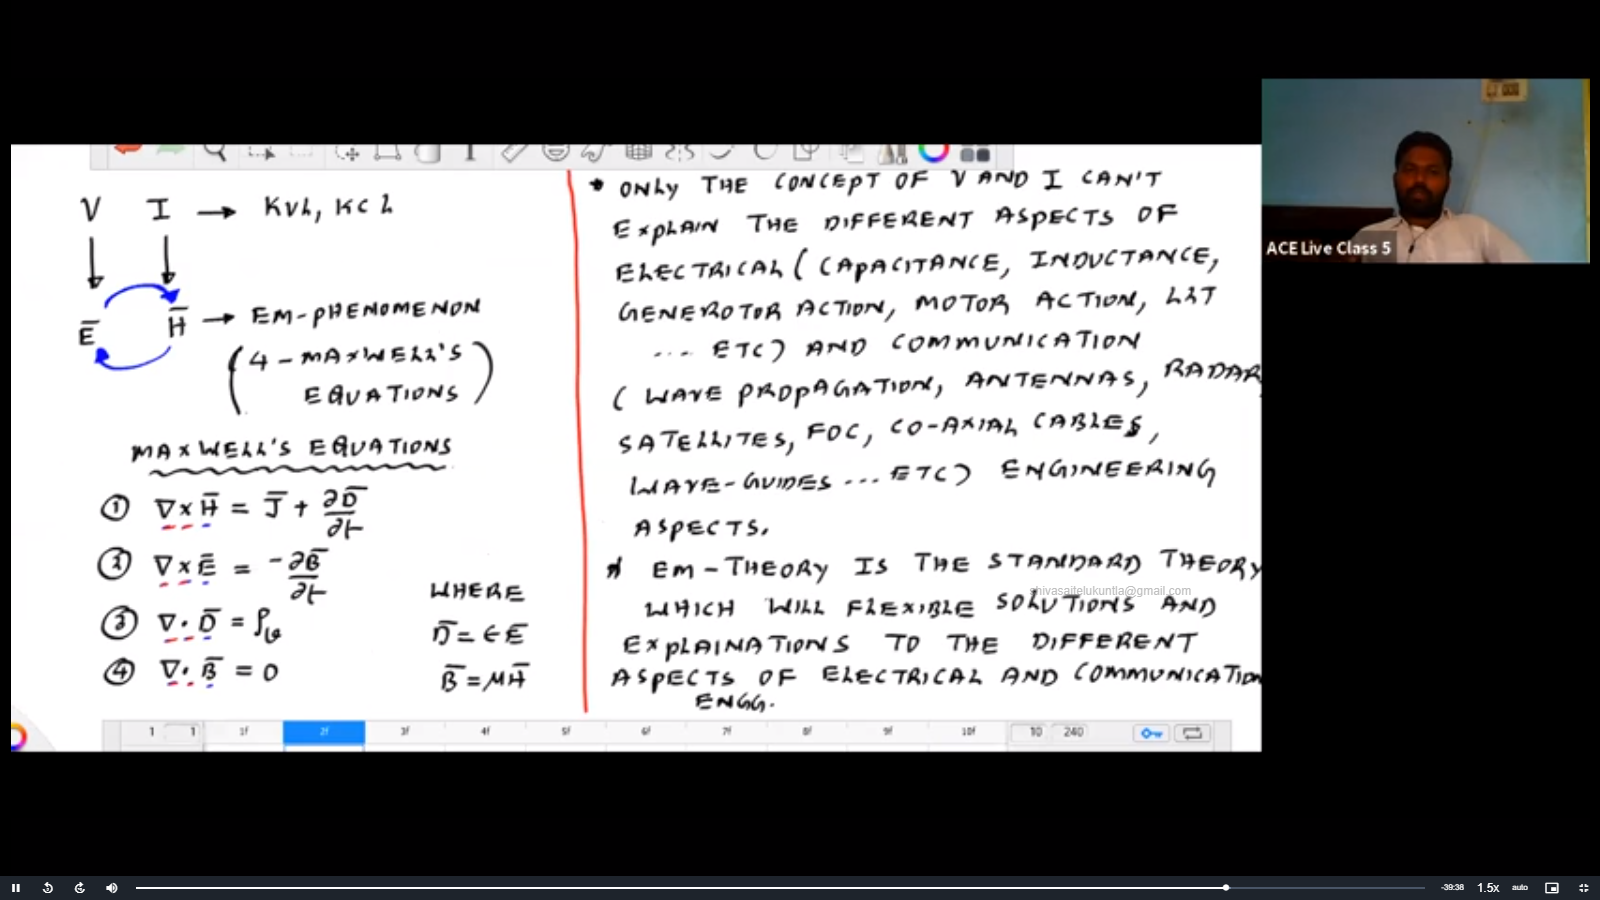 V I → KVL, KCL
E̅ H̅ → EM-PHENOMENON
(4-MAXWELL'S
EQUATIONS)
MAXWELL'S EQUATIONS
① ∇×H̅ = J̅ + ∂D̅/∂t
② ∇×E̅ = -∂B̅/∂t
③ ∇·D̅ = ρᵥ
④ ∇·B̅ = 0
WHERE
D̅ = ϵE̅
B̅ = μH̅
* ONLY THE CONCEPT OF V AND I CAN'T
EXPLAIN THE DIFFERENT ASPECTS OF
ELECTRICAL (CAPACITANCE, INDUCTANCE,
GENEROTOR ACTION, MOTOR ACTION, LRT
.... ETC) AND COMMUNICATION
(WAVE PROPAGATION, ANTENNAS, RADAR,
SATELLITES, FOC, CO-AXIAL CABLES,
WAVE-GUIDES ... ETC) ENGINEERING
ASPECTS.
* EM-THEORY IS THE STANDARD THEORY
shivasaitelukuntla@gmail.com
WHICH WILL FLEXIBLE SOLUTIONS AND
EXPLAINATIONS TO THE DIFFERENT
ASPECTS OF ELECTRICAL AND COMMUNICATION
ENGG.
1 1 1f 2f 3f 4f 5f 6f 7f 8f 9f 10f 10 240
ACE Live Class 5
-39:38 1.5x auto